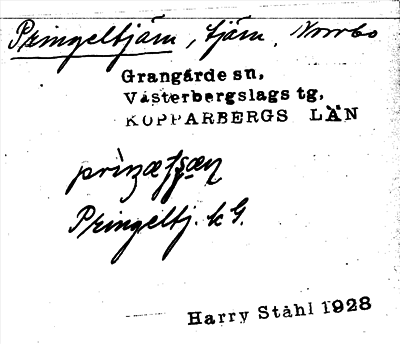 Pringeltjärn, tjärn, Norrbo
Grangärde sn,
Västerbergslags tg,
KOPPARBERGS LÄN
Pringeltj. k G.
Harry Ståhl 1928